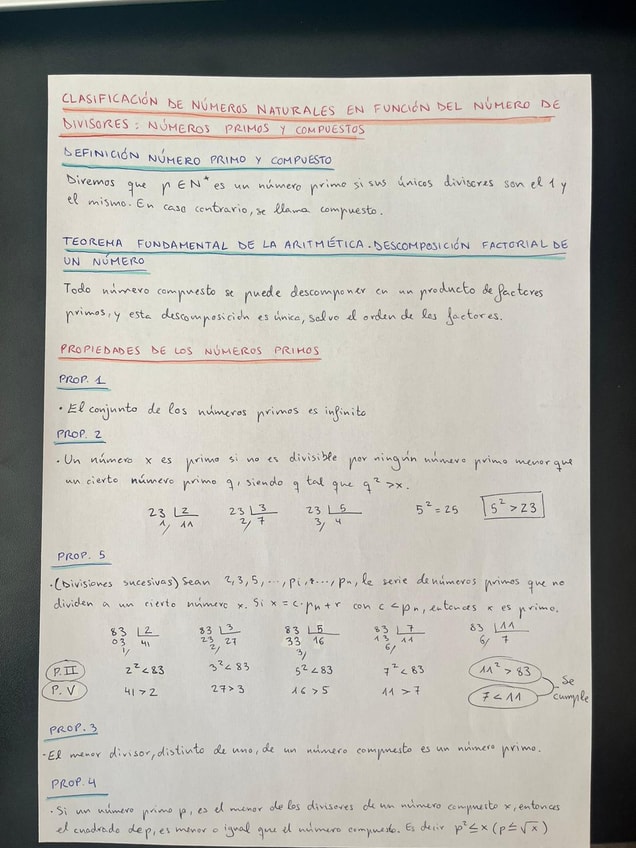 CLASIFICACIÓN DE NÚMEROS NATURALES EN FUNCIÓN DEL NÚMERO DE
DIVISORES: NÚMEROS PRIMOS Y COMPUESTOS
DEFINICIÓN NÚMERO PRIMO Y COMPUESTO
Diremos que p ∈ N* es un número primo si sus únicos divisores son el 1 y
el mismo. En caso contrario, se llama compuesto.
TEOREMA FUNDAMENTAL DE LA ARITMÉTICA. DESCOMPOSICIÓN FACTORIAL DE
UN NÚMERO
Todo número compuesto se puede descomponer en un producto de factores
primos, y esta descomposición es única, salvo el orden de los factores.
PROPIEDADES DE LOS NÚMEROS PRIMOS
PROP. 1
· El conjunto de los números primos es infinito
PROP. 2
· Un número x es primo si no es divisible por ningún número primo menor que
un cierto número primo q, siendo q tal que q² > x.
23 |2 23 |3 23 |5 5² = 25 5² > 23
1/ 11 2/ 7 3/ 4
PROP. 5
· (Divisiones sucesivas) Sean 2, 3, 5, ..., pi, ..., pn, la serie de números primos que no
dividen a un cierto número x. Si x = c·pn + r con c < pn, entonces x es primo.
83 |2 83 |3 83 |5 83 |7 83 |11
03 41 23 27 33 16 13 11 6/ 7
1/ 2/ 3/ 6/
P. II 2² < 83 3² < 83 5² < 83 7² < 83 11² > 83
P. V 41 > 2 27 > 3 16 > 5 11 > 7 7 < 11
Se
cumple
PROP. 3
· El menor divisor, distinto de uno, de un número compuesto es un número primo.
PROP. 4
· Si un número primo p, es el menor de los divisores de un número compuesto x, entonces
el cuadrado de p, es menor o igual que el número compuesto. Es decir p² ≤ x (p ≤ √x)